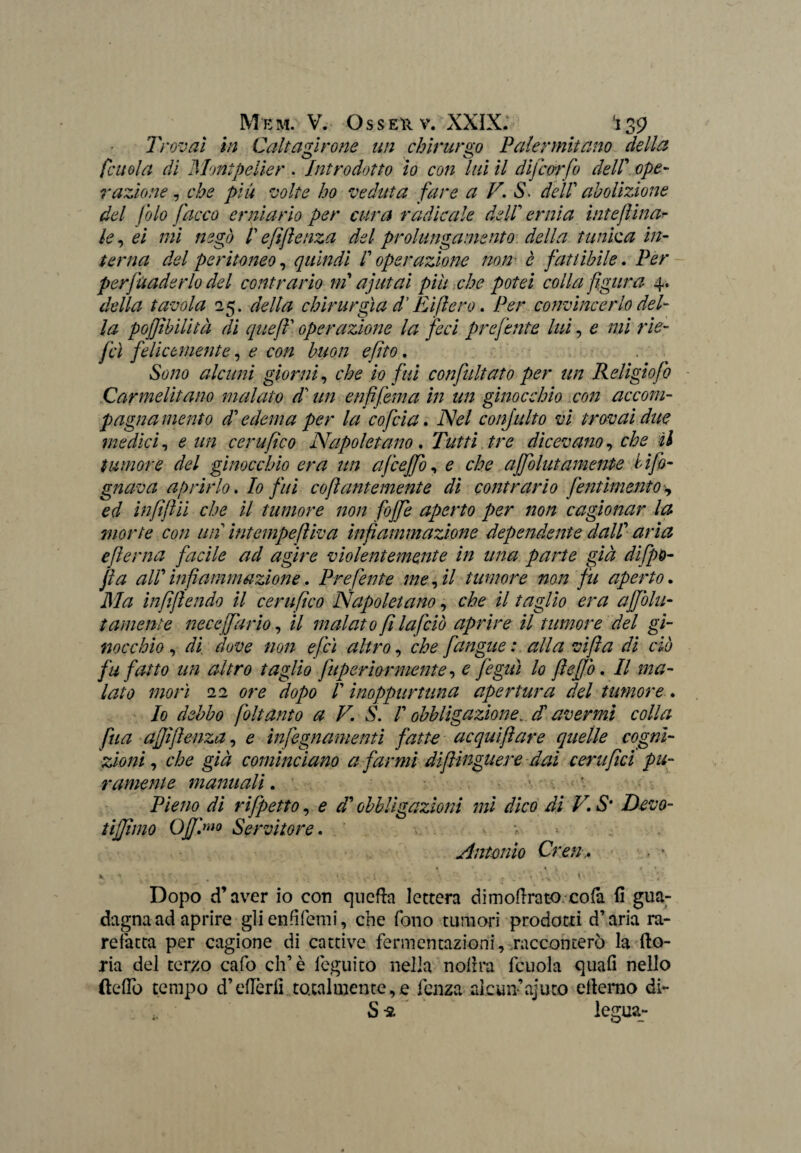 Mem. V. Osserv. XXIX. 139
Trovai in Caltagirone un chirurgo Palermitano della
ſcuola di Montpelier. Introdotto io con lui il diſcorſo dell' ope-
razione, che più volte ho veduta fare a V. S. dell' abolizione
del ſolo ſacco erniario per cura radicale dell' ernia inteſtina-
le, ei mi negò l' eſiſtenza del prolungamento della tunica in-
terna del peritoneo, quindi l' operazione non è fattibile. Per
perſuaderlo del contrario m' ajutai più che potei colla figura 4.
della tavola 25. della chirurgìa d' Eiſtero. Per convincerlo del-
la poſſibilità di queſt' operazione la feci preſente lui, e mi rie-
ſcì felicemente, e con buon eſito.
Sono alcuni giorni, che io fui conſultato per un Religioſo
Carmelitano malato d' un enfiſema in un ginocchio con accom-
pagnamento d' edema per la coſcia. Nel conſulto vi trovai due
medici, e un ceruſico Napoletano. Tutti tre dicevano, che il
tumore del ginocchio era un aſceſſo, e che aſſolutamente biſo-
gnava aprirlo. Io fui coſtantemente di contrario ſentimento,
ed inſiſtii che il tumore non foſſe aperto per non cagionar la
morte con un' intempeſtiva infiammazione dependente dall' aria
eſterna facile ad agire violentemente in una parte già diſpo-
ſta all' infiammazione. Preſente me, il tumore non fu aperto.
Ma inſiſtendo il ceruſico Napoletano, che il taglio era aſſolu-
tamente neceſſario, il malato ſi laſciò aprire il tumore del gi-
nocchio, di dove non eſcì altro, che ſangue: alla viſta di ciò
fu fatto un altro taglio ſuperiormente, e ſeguì lo ſteſſo. Il ma-
lato morì 22 ore dopo l' inoppurtuna apertura del tumore.
Io debbo ſoltanto a V. S. l' obbligazione d' avermi colla
ſua aſſiſtenza, e inſegnamenti fatte acquiſtare quelle cogni-
zioni, che già cominciano a farmi diſtinguere dai ceruſici pu-
ramente manuali.
Pieno di riſpetto, e d' obbligazioni mi dico di V. S' Devo-
tiſſimo Oſſ.mo Servitore.
Antonio Cren.
Dopo d'aver io con queſta lettera dimoſtrato coſa ſi gua-
dagna ad aprire gli enfiſemi, che ſono tumori prodotti d'aria ra-
refatta per cagione di cattive fermentazioni, racconterò la ſto-
ria del terzo caſo ch'è ſeguito nella noſtra ſcuola quaſi nello
ſteſſo tempo d'eſſerſi totalmente, e ſenza alcun'ajuto eſterno di-
S 2 legua-